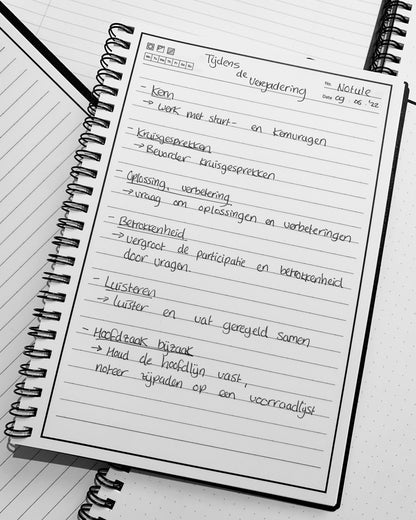 Tijdens
de vergadering
No. Notule
Date 09 06 '22
- Kern
→ werk met start- en kernvragen
- Kruisgesprekken
→ Bevorder kruisgesprekken
- Oplossing, verbetering
→ vraag om oplossingen en verbeteringen
- Betrokkenheid
→ vergroot de participatie en betrokkenheid
door vragen.
- Luisteren
→ luister en vat geregeld samen
- Hoofdzaak bijzaak
→ Houd de hoofdlijn vast,
noteer zijpaden op een voorraadlijst